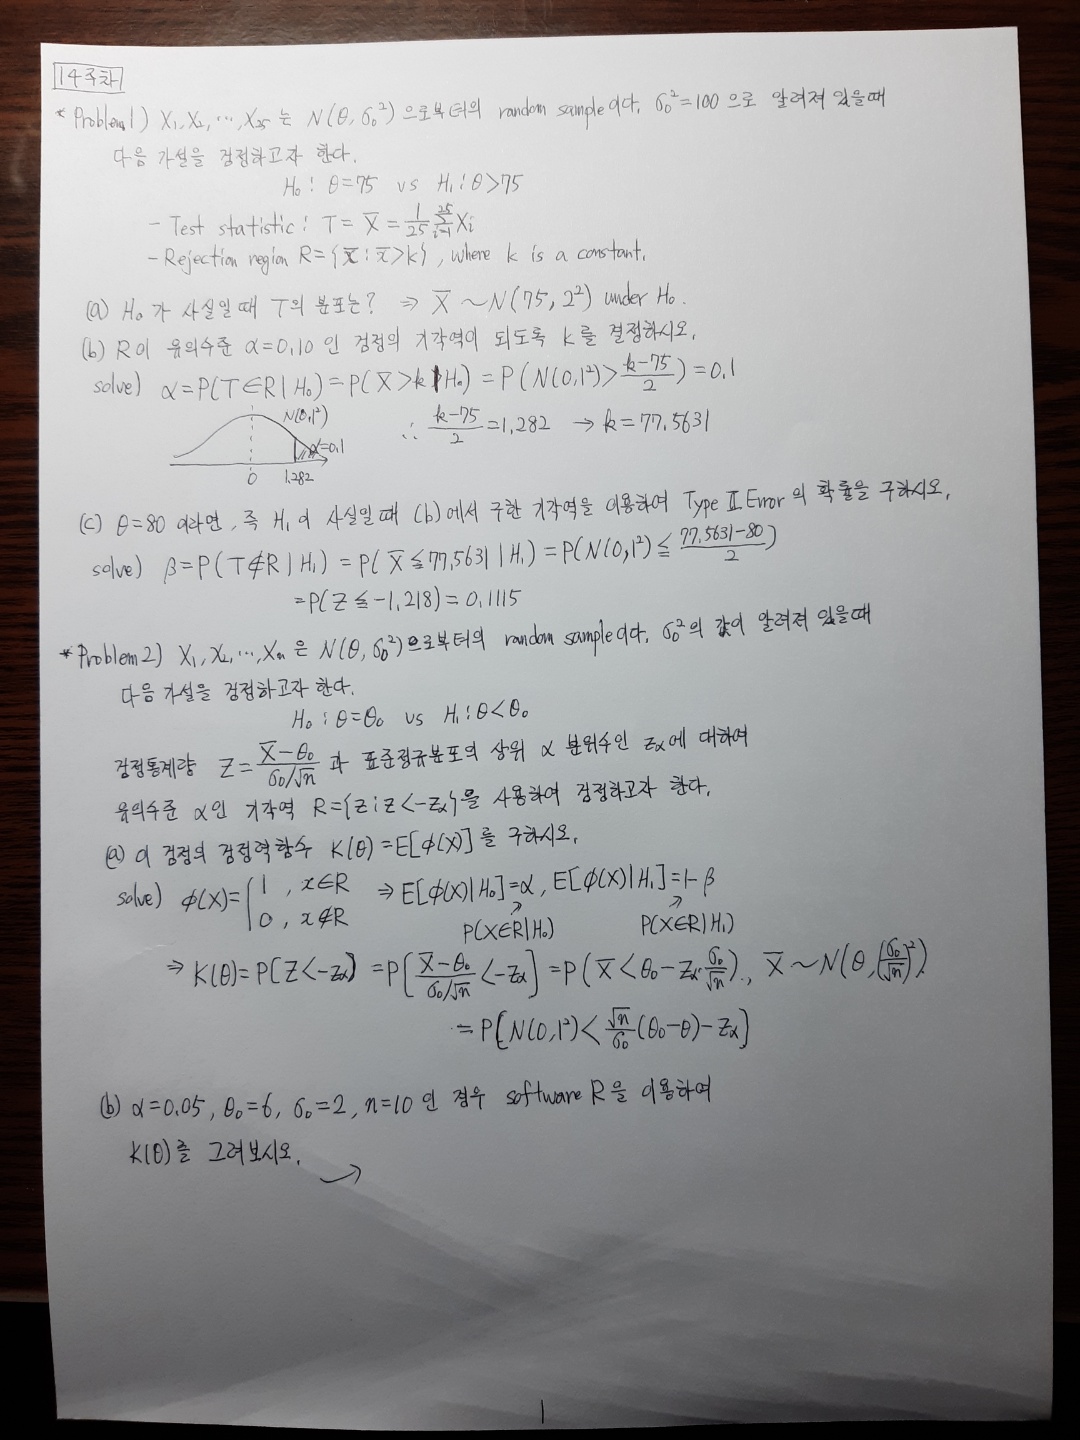 14주차
* Problem 1) X₁, X₂, ⋯, X₂₅ 는 N(θ, σ₀²) 으로부터의 random sample이다. σ₀²=100 으로 알려져 있을때
다음 가설을 검정하고자 한다.
H₀ : θ=75 vs H₁ : θ>75
- Test statistic : T = X̄ = 1/25 Σᵢ₌₁²⁵ Xᵢ
- Rejection region R={x̄ : x̄>k}, where k is a constant.
(a) H₀가 사실일때 T의 분포는? ⇒ X̄ ~ N(75, 2²) under H₀.
(b) R이 유의수준 α=0.10 인 검정의 기각역이 되도록 k를 결정하시오.
solve) α=P(T∈R | H₀)=P(X̄>k | H₀) = P(N(0,1²)> (k-75)/2) =0.1
N(0,1²) ∴ (k-75)/2 =1.282 → k=77.5631
α=0.1
0 1.282
(c) θ=80 이라면, 즉 H₁이 사실일때 (b)에서 구한 기각역을 이용하여 Type Ⅱ Error의 확률을 구하시오.
solve) β=P(T∉R | H₁) = P(X̄≦77.5631 | H₁) = P(N(0,1²)≦ (77.5631-80)/2)
=P(Z≦-1.218)=0.1115
* Problem 2) X₁, X₂, ⋯, Xₙ 은 N(θ, σ₀²)으로부터의 random sample이다. σ₀²의 값이 알려져 있을때
다음 가설을 검정하고자 한다.
H₀ : θ=θ₀ vs H₁ : θ<θ₀
검정통계량 Z= (X̄-θ₀)/(σ₀/√n) 과 표준정규분포의 상위 α 분위수인 zα에 대하여
유의수준 α인 기각역 R={z : z<-zα}을 사용하여 검정하고자 한다.
(a) 이 검정의 검정력함수 K(θ)=E[ϕ(X)]를 구하시오.
solve) ϕ(X)={1, x∈R ⇒ E[ϕ(X)|H₀]=α, E[ϕ(X)|H₁]=1-β
0, x∉R P(X∈R|H₀) P(X∈R|H₁)
⇒ K(θ)=P[Z<-zα] =P[(X̄-θ₀)/(σ₀/√n) <-zα] =P(X̄<θ₀-zα·σ₀/√n)., X̄~N(θ,(σ₀/√n)²).
=P[N(0,1²)< √n/σ₀ (θ₀-θ)-zα]
(b) α=0.05, θ₀=6, σ₀=2, n=10 인 경우 software R을 이용하여
K(θ)를 그려보시오. →
1